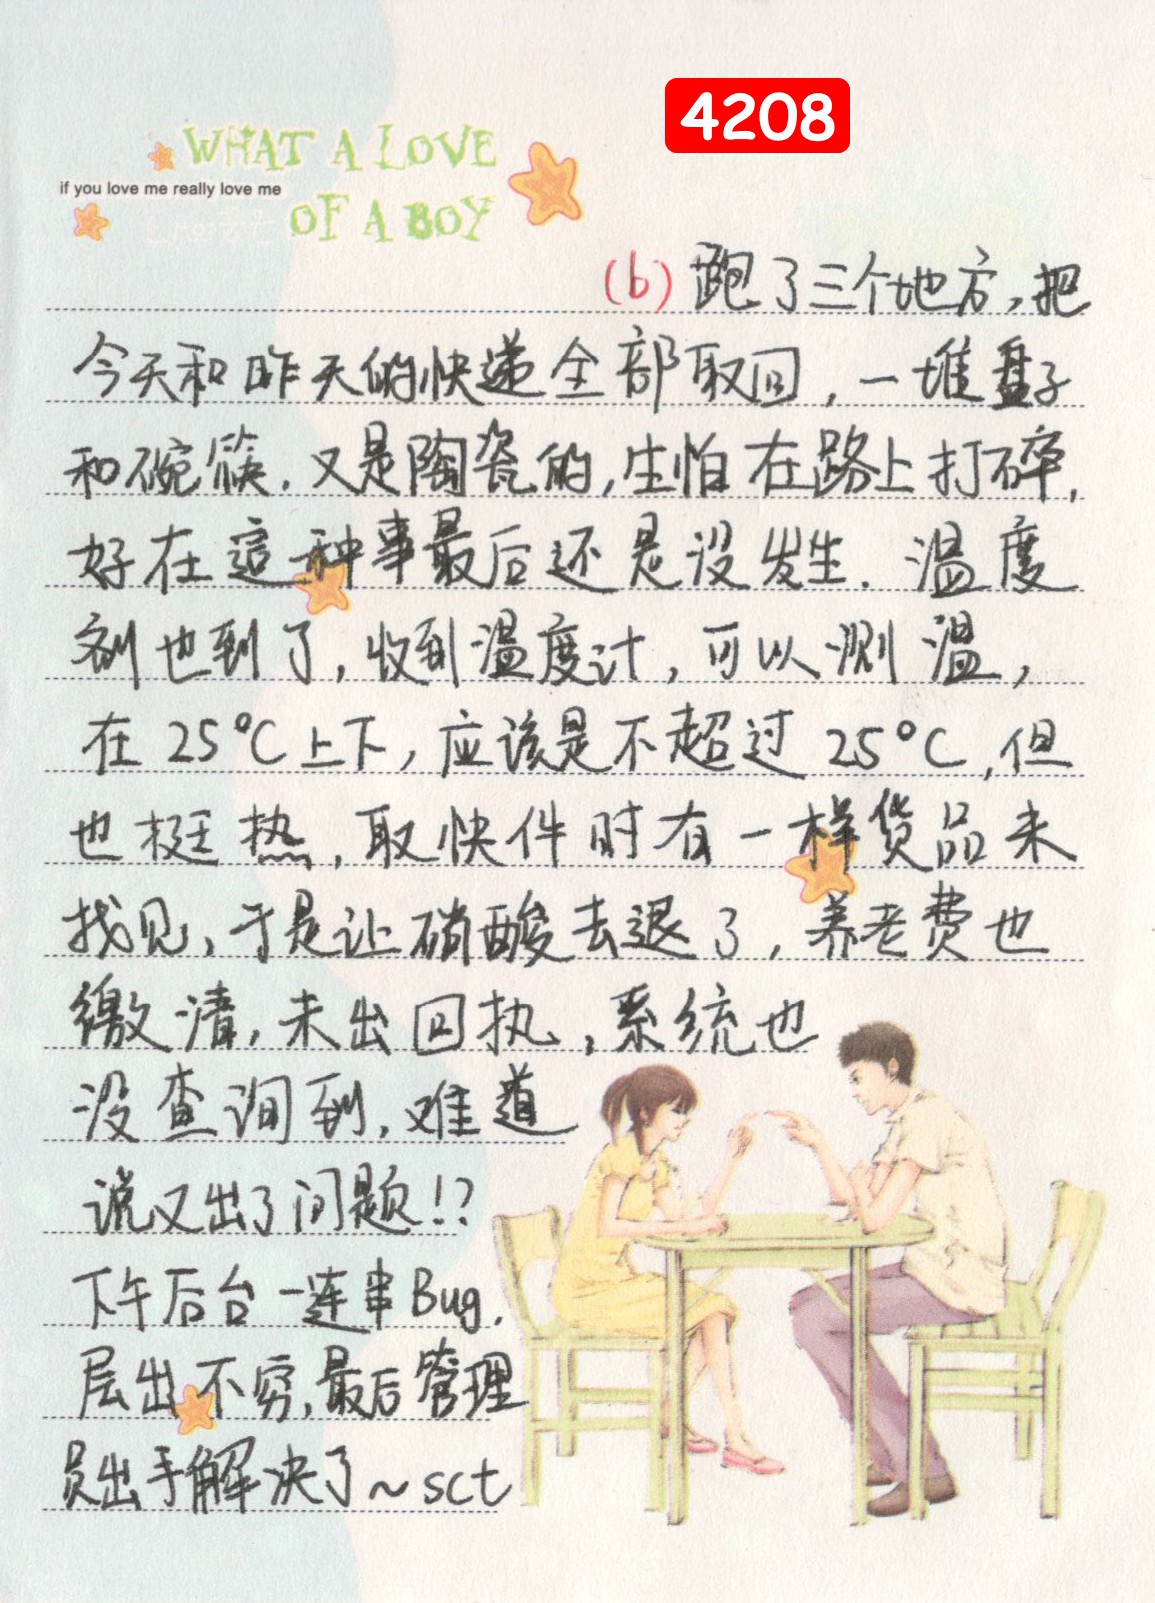 4208
WHAT A LOVE
if you love me really love me
OF A BOY
(b) 跑了三个地方,把
今天和昨天的快递全部取回,一堆盘子
和碗筷.又是陶瓷的,生怕在路上打碎,
好在這种事最后还是没发生.温度
剂也到了,收到温度计,可以测温,
在25°C上下,应该是不超过25°C,但
也挺热,取快件时有一样货品未
找见,于是让硝酸去退了,养老费也
缴清,未出回执,系统也
没查询到,难道
说又出了问题!?
下午后台一连串Bug.
层出不穷,最后管理
员出手解决了~sct